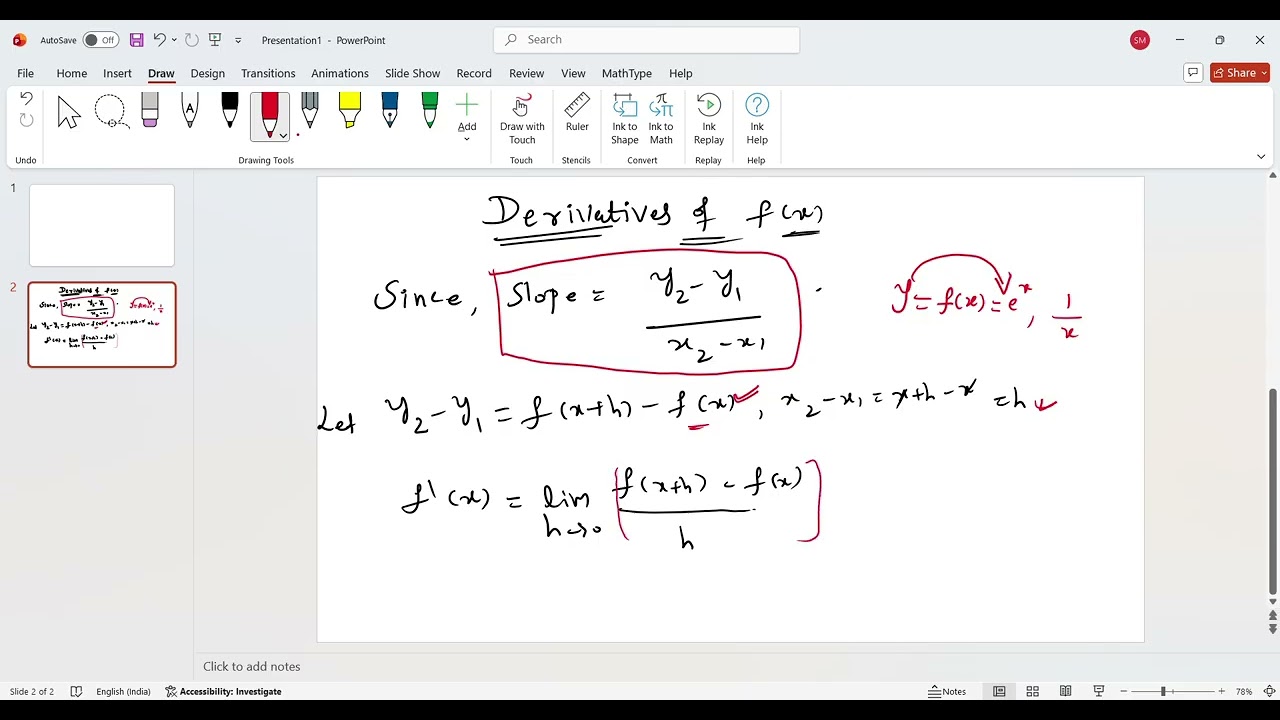 AutoSave Off Presentation1 - PowerPoint Search SM
File Home Insert Draw Design Transitions Animations Slide Show Record Review View MathType Help Share
Undo
Add
Draw with Touch
Ruler
Ink to Shape
Ink to Math
Ink Replay
Ink Help
Drawing Tools Touch Stencils Convert Replay Help
1
2
Derivatives of f(x)
Since, Slope = (y₂ - y₁)/(x₂ - x₁)
y = f(x) = eˣ, 1/x
Let y₂ - y₁ = f(x+h) - f(x), x₂ - x₁ = x+h - x = h
f'(x) = lim h→0 [(f(x+h) - f(x))/h]
Click to add notes
Slide 2 of 2 English (India) Accessibility: Investigate Notes 78%